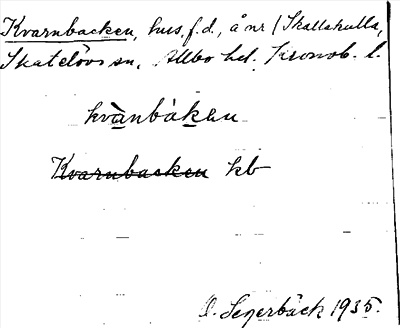 Kvarnbacken, hus, f.d., å nr 1 Skallahulla,
Skatelövs sn, Allbo hd. Kronob. l.
kvànbàkan
Kvarnbacken kb
1935.